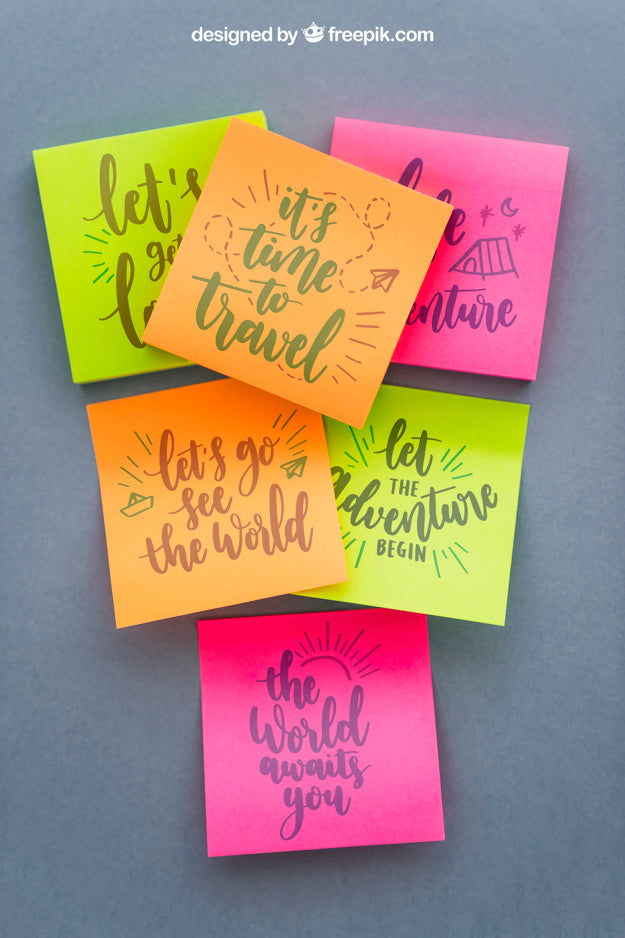 designed by freepik.com
let's
get
it's
time
to
travel
let's go
see
the world
let
THE
adventure
BEGIN
the
world
awaits
you